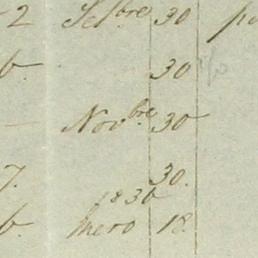 2 Setbre 30 po
b. 30
— Novbre 30
7. 30.
1830
b. Enero 18.